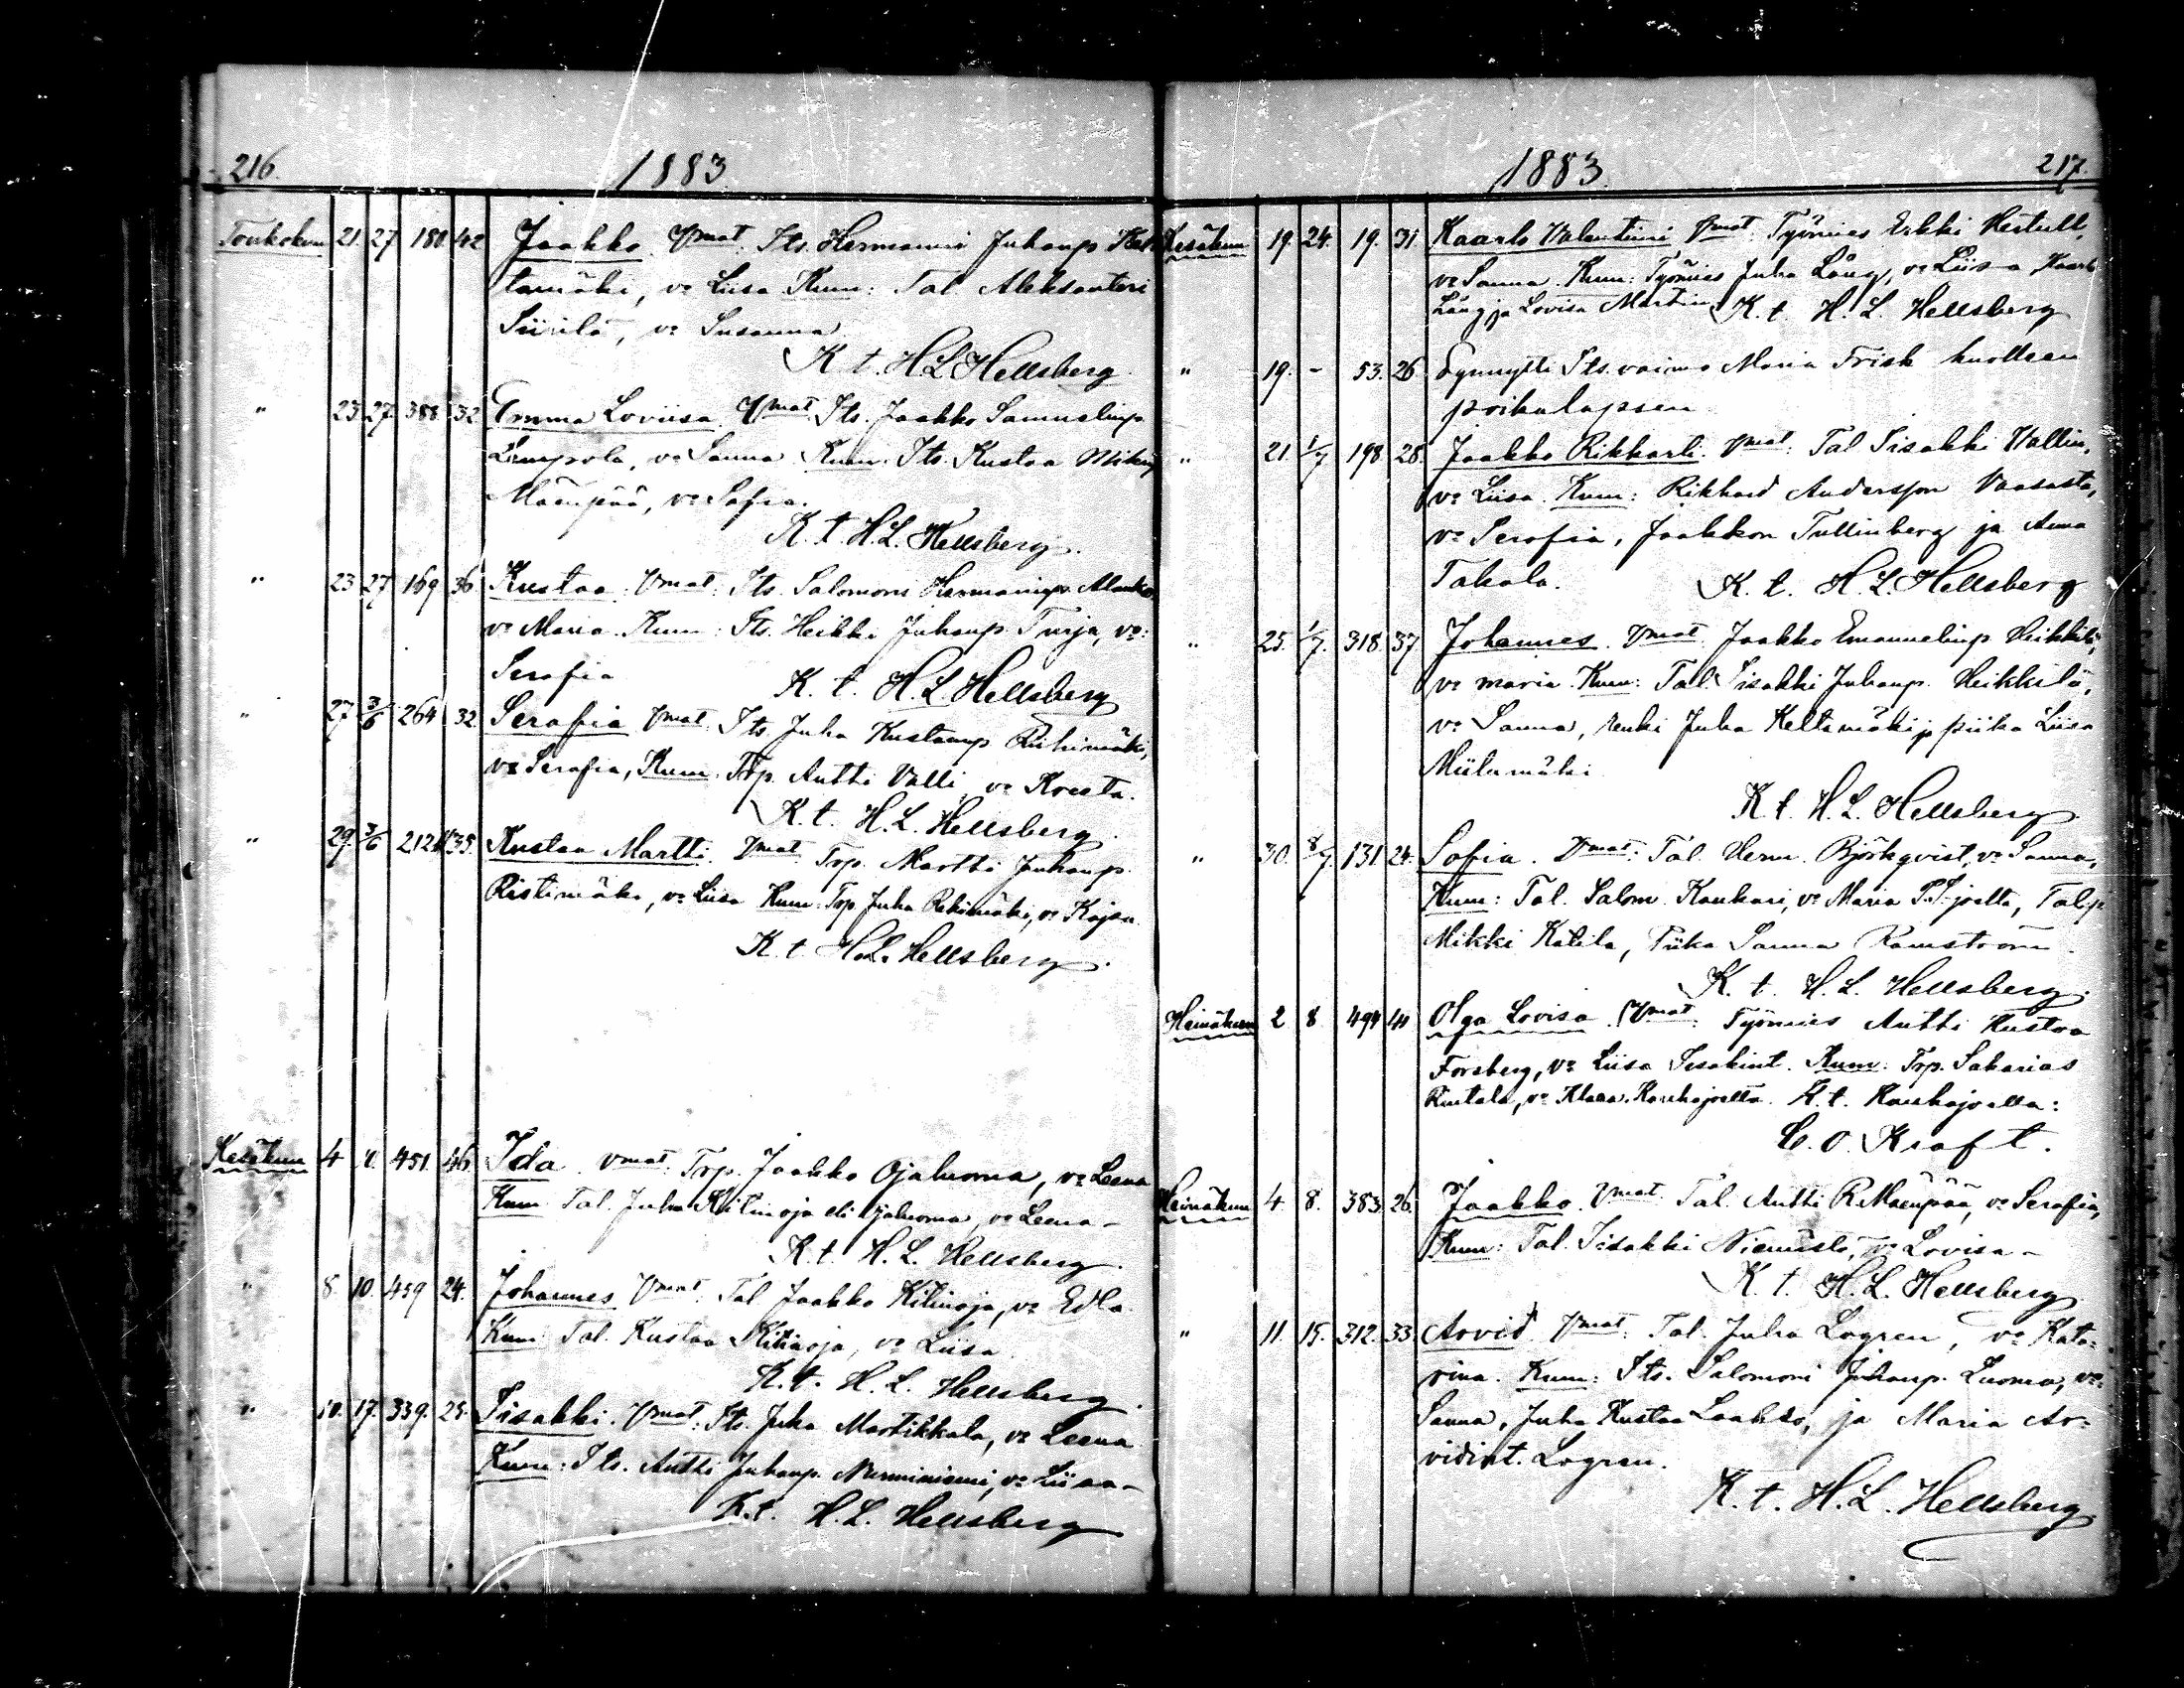 216. 1883
Toukokuu 21. 27 180 42 Jaakko. Vmat. Its. Hermanni Juhanp. Kel-
tamäki, vo Liisa Kum: Tal Aleksanteri
Siirilä, vo Susanna
K. t. H. L. Hellsberg.
" 23 27. 388 32 Emma Loviisa. Vmat. Its. Jaakko Samuelinp.
Lampola, vo Sanna. Kum. Its. Kustaa Mikinp
Mäenpää, vo Sofia.
K. t. H. L. Hellsberg.
" 23 27 169 36. Kustaa. Vmat. Its. Salomoni Hermaninp.
vo Maria. Kum: Its. Heikki Juhanp. Turja, vo:
Serafia
K. t. H. L. Hellsberg
" 27 3/6 264 32. Serafia Vmat. Its. Juha Kustaanp Riihimäki,
vo Serafia, Kum. Trp. Antti Valli, vo Kreeta.
K. t. H. L. Hellsberg.
" 29. 3/6 212 35. Kustaa Martti. Vmat Trp. Martti Juhanp.
Ristimäki, vo Liisa Kum. Trp. Juha Rekimäki, vo Kajsa.
K. t. H. L. Hellsberg.
Kesäkuu 4 451. 46. Ida. Vmat: Trp. Jaakko Ojaluoma, vo Leena
Kum Tal. Juha Kitinoja eli Ojaluoma, vo Leena -
K. t. H. L. Hellsberg.
" 8. 10. 459 24. Johannes Vmat. Tal Jaakko Kitinoja, vo Edla.
Kum: Tal. Kustaa Kitinoja, vo Liisa
K. t. H. L. Hellsberg.
" 10. 17. 339. 25. Iisakki. Vmat. Its. Juha Martikkala, vo Leena
Kum: Its. Antti Juhanp. Nurminiemi, vo Liisa -
K. t. H. L. Hellsberg
1883. 217.
Kesäkuu 19. 24. 19. 31. Kaarlo Valentiini Vmat: Työmies Erkki
vo Sanna. Kum: Työmies Juha Lång, vo Liisa Kaarlo
Lång ja Lovisa K. t. H. L. Hellsberg
" 19. - 53. 26. Synnytti Its. vaimo Maria Frisk kuolleen
poikalapsen
" 21. 1/7 198 28. Jaakko Rikharti. Vmat: Tal Iisakki Vallin,
vo Liisa. Kum: Rikhard Andersson Vaasasta,
vo Serafia, Jaakkon Tullinberg ja Anna
Takala. K. t. H. L. Hellsberg
" 25. 1/7. 318. 37. Johannes. Vmat Jaakko Emanuelinp Heikkilä,
vo Maria. Kum: Tal. Iisakki Juhanp. Heikkilä,
vo Sanna, renki Juha Keltamäki ja piika Liisa
Miilumäki.
K. t. H. L. Hellsberg.
" 30. 8/7. 131. 24. Sofia. Vmat: Tal. Herm. Björkqvist, vo Sanna,
Kum: Tal. Salom. Kankari, vo Maria Tal.p
Mikki Katila, Piika Sanna Ramström.
K. t. H. L. Hellsberg.
Heinäkuu 2 8. 494 40 Olga Lovisa. Vmat: Työmies Antti Kustaa
Forsberg, vo Liisa Iisakint. Kum: Trp. Sakarias
Rintala, vo Klaara. Kauhajoelta. K. t. Kauhajoella:
C. O. Kraft.
Heinäkuu 4. 8. 383. 26. Jaakko. Vmat. Tal. Antti R. Mäenpää, vo Serafia,
Kum: Tal. Iisakki Niemistö, vo Lovisa -
K. t. H. L. Hellsberg
" 11. 15. 312. 33. Arvid Vmat: Tal. Juha Logren, vo Kata-
rina. Kum: Its. Salomoni Juhanp. Luoma, vo:
Sanna, Juha Kustaa Laakso, ja Maria Ar-
vidint. Logren.
K. t. H. L. Hellsberg